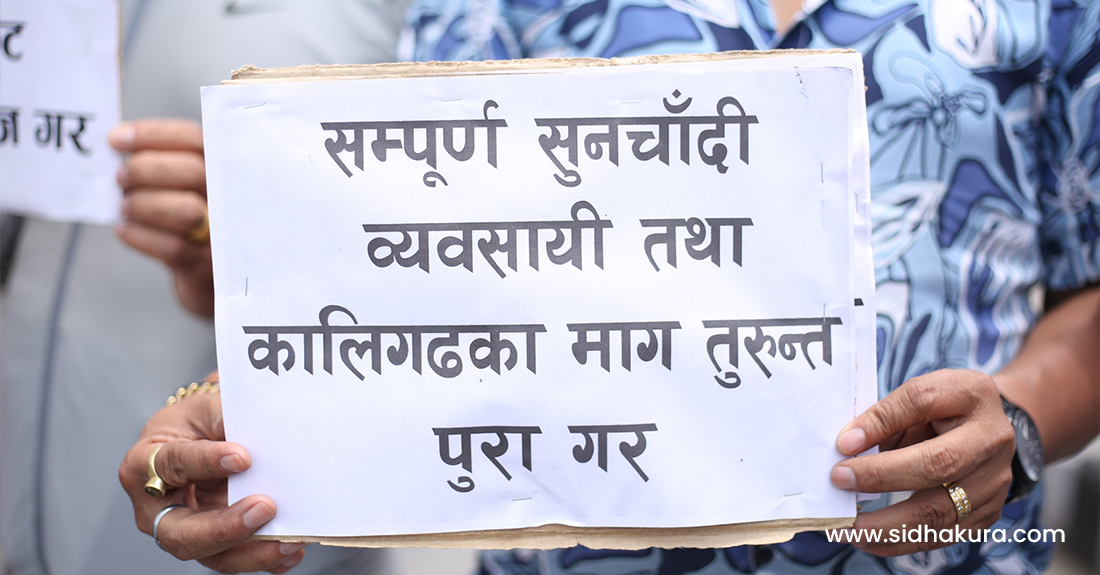 ट
गर
सम्पूर्ण सुनचाँदी
व्यवसायी तथा
कालिगढका माग तुरुन्त
पुरा गर
www.sidhakura.com